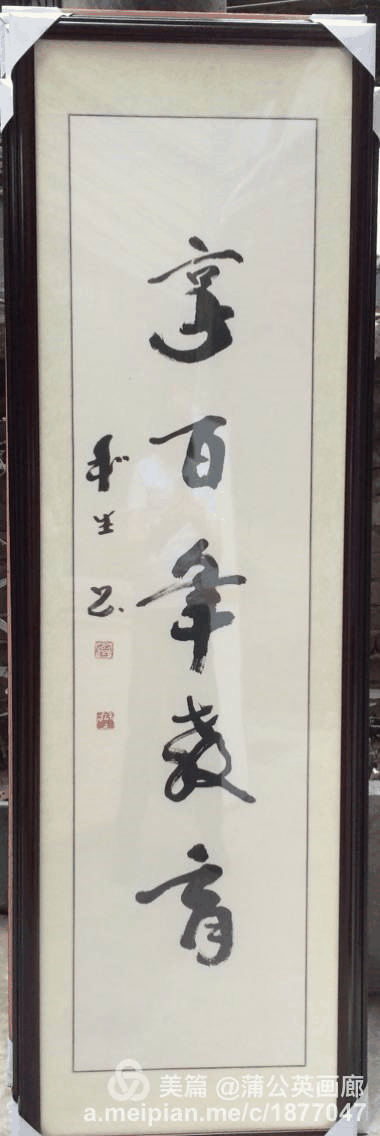 享百年教育
生书
美篇 @蒲公英画廊
a.meipian.me/c/1877047